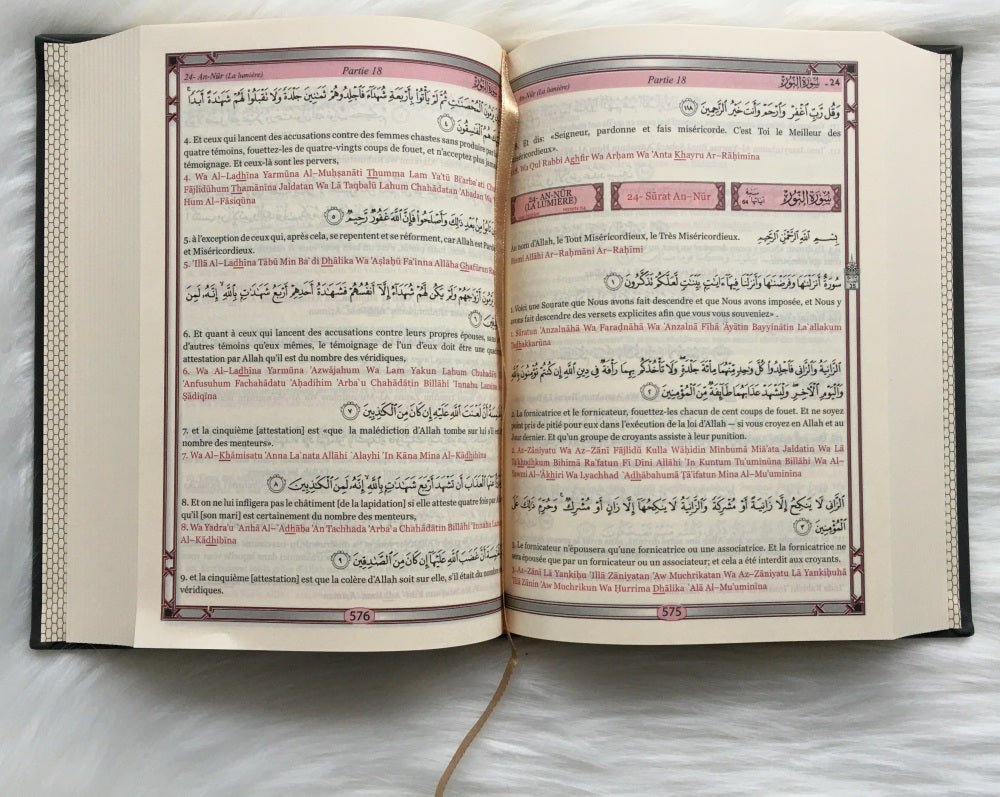 An-Nûr (La lumière) Partie 18 سُورَةُ النُّورِ - 24
وَقُل رَّبِّ ٱغْفِرْ وَٱرْحَمْ وَأَنتَ خَيْرُ ٱلرَّٰحِمِينَ ١١٨
Et dis: «Seigneur, pardonne et fais miséricorde. C'est Toi le Meilleur des
miséricordieux».
Wa Qul Rabbi Aghfir Wa Arĥam Wa 'Anta Khayru Ar-Rāĥimīna
24- AN-NÛR
(LA LUMIÈRE)
24- Sūrat An-Nūr
سُورَةُ النُّورِ
Au nom d'Allah, le Tout Miséricordieux, le Très Miséricordieux. بِسْمِ ٱللَّهِ ٱلرَّحْمَٰنِ ٱلرَّحِيمِ
Bismi Allāhi Ar-Raĥmāni Ar-Raĥīmi
سُورَةٌ أَنزَلْنَٰهَا وَفَرَضْنَٰهَا وَأَنزَلْنَا فِيهَآ ءَايَٰتٍۭ بَيِّنَٰتٍ لَّعَلَّكُمْ تَذَكَّرُونَ ١
1. Voici une Sourate que Nous avons fait descendre et que Nous avons imposée, et Nous y
avons fait descendre des versets explicites afin que vous vous souveniez» .
1. Sūratun 'Anzalnāhā Wa Farađnāhā Wa 'Anzalnā Fīhā 'Āyātin Bayyinātin La`allakum
Tadhakkarūna
ٱلزَّانِيَةُ وَٱلزَّانِى فَٱجْلِدُوا۟ كُلَّ وَٰحِدٍ مِّنْهُمَا مِا۟ئَةَ جَلْدَةٍ وَلَا تَأْخُذْكُم بِهِمَا رَأْفَةٌ فِى دِينِ ٱللَّهِ إِن كُنتُمْ تُؤْمِنُونَ بِٱللَّهِ
وَٱلْيَوْمِ ٱلْءَاخِرِ وَلْيَشْهَدْ عَذَابَهُمَا طَآئِفَةٌ مِّنَ ٱلْمُؤْمِنِينَ ٢
2. La fornicatrice et le fornicateur, fouettez-les chacun de cent coups de fouet. Et ne soyez
point pris de pitié pour eux dans l'exécution de la loi d'Allah — si vous croyez en Allah et au
Jour dernier. Et qu'un groupe de croyants assiste à leur punition.
2. Az-Zāniyatu Wa Az-Zānī Fājlidū Kulla Wāĥidin Minhumā Miā'ata Jaldatin Wa Lā
Ta'khudhkum Bihimā Ra'fatun Fī Dīni Allāhi 'In Kuntum Tu'uminūna Billāhi Wa Al-
Yawmi Al-'Ākhiri Wa Lyachhad `Adhābahumā Ţā'ifatun Mina Al-Mu'uminīna
ٱلزَّانِى لَا يَنكِحُ إِلَّا زَانِيَةً أَوْ مُشْرِكَةً وَٱلزَّانِيَةُ لَا يَنكِحُهَآ إِلَّا زَانٍ أَوْ مُشْرِكٌ وَحُرِّمَ ذَٰلِكَ عَلَى
ٱلْمُؤْمِنِينَ ٣
3. Le fornicateur n'épousera qu'une fornicatrice ou une associatrice. Et la fornicatrice ne
sera épousée que par un fornicateur ou un associateur; et cela a été interdit aux croyants.
3. Az-Zānī Lā Yankiĥu 'Illā Zāniyatan 'Aw Muchrikatan Wa Az-Zāniyatu Lā Yankiĥuhā
'Illā Zānin 'Aw Muchrikun Wa Ĥurrima Dhālika `Alá Al-Mu'uminīna
575
24- An-Nûr (La lumière) Partie 18
يَرْمُونَ ٱلْمُحْصَنَٰتِ ثُمَّ لَمْ يَأْتُوا۟ بِأَرْبَعَةِ شُهَدَآءَ فَٱجْلِدُوهُمْ ثَمَٰنِينَ جَلْدَةً وَلَا تَقْبَلُوا۟ لَهُمْ شَهَٰدَةً أَبَدًا
هُمُ ٱلْفَٰسِقُونَ ٤
4. Et ceux qui lancent des accusations contre des femmes chastes sans produire par
quatre témoins, fouettez-les de quatre-vingts coups de fouet, et n'acceptez plus jamais
témoignage. Et ceux-là sont les pervers,
4. Wa Al-Ladhīna Yarmūna Al-Muĥşanāti Thumma Lam Ya'tū Bi'arba`ati
Fājlidūhum Thamānīna Jaldatan Wa Lā Taqbalū Lahum Chahādatan 'Abadan Wa
Hum Al-Fāsiqūna
تَابُوا۟ مِنۢ بَعْدِ ذَٰلِكَ وَأَصْلَحُوا۟ فَإِنَّ ٱللَّهَ غَفُورٌ رَّحِيمٌ ٥
5. à l'exception de ceux qui, après cela, se repentent et se réforment, car Allah est
et Miséricordieux.
5. 'Illā Al-Ladhīna Tābū Min Ba`di Dhālika Wa 'Aşlaĥū Fa'inna Allāha Ghafūrun
يَرْمُونَ أَزْوَٰجَهُمْ وَلَمْ يَكُن لَّهُمْ شُهَدَآءُ إِلَّآ أَنفُسُهُمْ فَشَهَٰدَةُ أَحَدِهِمْ أَرْبَعُ شَهَٰدَٰتٍۭ بِٱللَّهِ إِنَّهُۥ لَمِنَ
٦
6. Et quant à ceux qui lancent des accusations contre leurs propres épouses, sans
d'autres témoins qu'eux mêmes, le témoignage de l'un d'eux doit être une
attestation par Allah qu'il est du nombre des véridiques,
6. Wa Al-Ladhīna Yarmūna 'Azwājahum Wa Lam Yakun Lahum
'Anfusuhum Fachahādatu 'Aĥadihim 'Arba`u Chahādātin Billāhi 'Innahu Lamina
Şādiqīna
أَنَّ لَعْنَتَ ٱللَّهِ عَلَيْهِ إِن كَانَ مِنَ ٱلْكَٰذِبِينَ ٧
7. et la cinquième [attestation] est «que la malédiction d'Allah tombe sur lui s'il
nombre des menteurs».
7. Wa Al-Khāmisatu 'Anna La`nata Allāhi `Alayhi 'In Kāna Mina Al-Kādhibīna
عَنْهَا ٱلْعَذَابَ أَن تَشْهَدَ أَرْبَعَ شَهَٰدَٰتٍۭ بِٱللَّهِ إِنَّهُۥ لَمِنَ ٱلْكَٰذِبِينَ ٨
8. Et on ne lui infligera pas le châtiment [de la lapidation] si elle atteste quatre fois par
qu'il [son mari] est certainement du nombre des menteurs,
8. Wa Yadra'u `Anhā Al-`Adhāba 'An Tachhada 'Arba`a Chahādātin Billāhi 'Innahu
Al-Kādhibīna
أَنَّ غَضَبَ ٱللَّهِ عَلَيْهَآ إِن كَانَ مِنَ ٱلصَّٰدِقِينَ ٩
9. et la cinquième [attestation] est que la colère d'Allah soit sur elle, s'il était du nombre
véridiques.
576